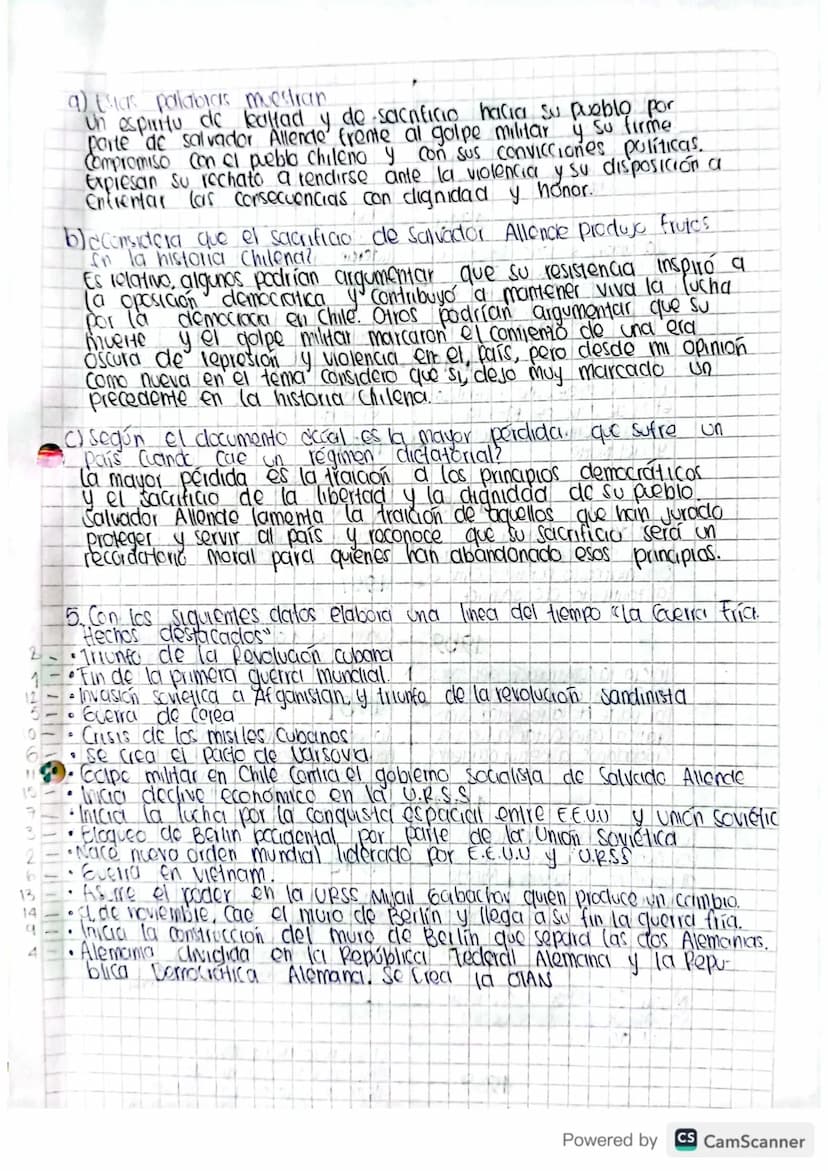 a) Estas palabras muestran
un espiritu de lealtad y de sacrificio hacia su pueblo por
parte de salvador Allende frente al golpe militar y su firme
compromiso con el pueblo chileno y con sus convicciones políticas.
Expresan su rechazo a rendirse ante la violencia y su disposición a
enfrentar las consecuencias con dignidad y honor.
b) ¿Considera que el sacrificio de Salvador Allende produjo frutos
en la historia chilena?
Es relativo, algunos podrían argumentar que su resistencia inspiró a
la oposición democratica y contribuyó a mantener viva la lucha
por la democracia en Chile. Otros podrían argumentar que su
muerte y el golpe militar marcaron el comienzo de una era
oscura de represion y violencia en el país, pero desde mi opinión
como nueva en el tema considero que si, dejo muy marcado un
precedente en la historia chilena.
c) Según el documento cúal es la mayor pérdida que sufre un
país cuando cae un régimen dictatorial?
La mayor pérdida es la traición a los principios democráticos
y el sacrificio de la libertad y la dignidad de su pueblo.
Salvador Allende lamenta la traición de aquellos que han jurado
proteger y servir al país y reconoce que su sacrificio será un
recordatorio moral para quienes han abandonado esos principios.
5. Con los siguientes datos elabora una linea del tiempo "La Guerra Fría.
Hechos destacados"
2 - • Triunfo de la Revolución cubana
1 - • Fin de la primera guerra mundial.
12 - • Invasión soviética a Afganistan, y triunfo de la revolución sandinista
5 - • Guerra de Corea
10 - • Crisis de los misiles cubanos
6 - • Se crea el Pacto de Varsovia.
11 • Golpe militar en Chile contra el gobierno socialista de Salvador Allende
15 - • Inicia declive económico en la U.R.S.S.
7 - • Inicia la lucha por la conquista espacial entre E.E.U.U y Unión soviétic
3 - • Bloqueo de Berlín occidental por parte de la Unión Soviética
2 - • Nace nuevo orden mundial liderado por E.E.U.U y URSS
• Guerra en Vietnam.
13 - • Asume el poder en la URSS Mijail Gorbachov quien produce un cambio.
14 - • de noviembre, cae el muro de Berlín y llega a su fin la guerra fría.
9 - • Inicia la construccion del muro de Berlín que separa las dos Alemanias.
4 - • Alemania dividida en la República Federal Alemana y la Repu-
blica Democrática Alemana. Se crea la OTAN
Powered by CS CamScanner